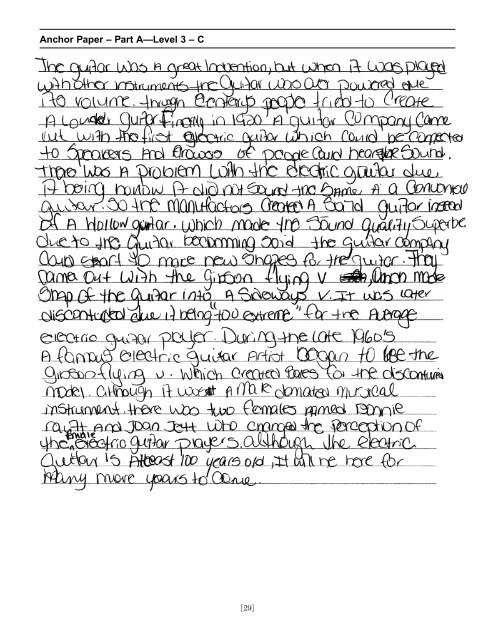 Anchor Paper – Part A—Level 3 – C
The guitar was A great Invention, but when it was played
with other instruments the Guitar was over powered due
to volume. through Centerys people tried to Create
A Louder guitar. Finerly in 1920 A guitar Company Came
out with the first electric guitar which could be Connected
to Speakers And Crowds of people Could hear the Sound.
There was A problem with the electric guitar due
it being hollow it did not sound the Same A a
guitar. So the manufactors Created A Solid guitar instead
of A Hollow guitar. which made the Sound quality Superbe
due to the Guitar becomming solid the guitar company
Could start to make new shapes for the guitar. They
Came Out with the Gibson flying V which made
Shap of the Guitar into A Sideways v. It was later
discontuted due it being "too extreme" for the Average
electric guitar player. During the late 1960s
A famous electric Guitar Artist began to use the
gibson flying v. which created for the
model. Although it was A Male donated musical
instrument there was two females named Bonnie
raitt And Joan Jett who changed the perception of
the female electric guitar players. although the electric
Guitar is Atleast 100 years old, It will be here for
Many more years to Come.
[29]